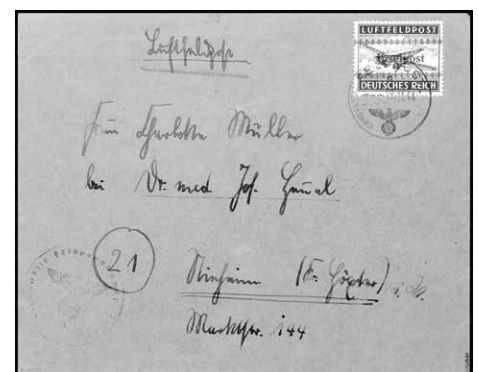 Luftfeldpost
LUFTFELDPOST
Inselpost
DEUTSCHES REICH
Frau Charlotte Müller
bei Dr. med. Jos.
21
Nieheim (Kr. Höxter) i. W.
Marktstr. 144